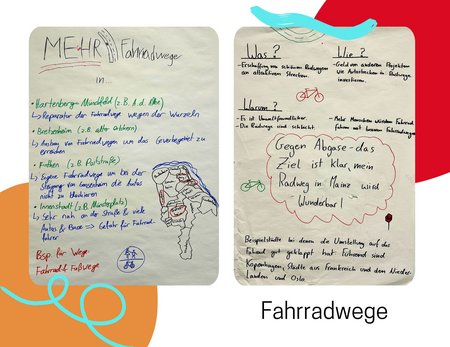 MEHR Fahrradwege
in...
• Hartenberg-Münchfeld (z.B. A.d. Allee)
↳ Reparatur der Fahrradwege wegen der Wurzeln
• Bretzenheim (z.B. alter
↳ Ausbau von Fahrradwegen um das Gewerbegebiet zu
erreichen
• Finthen (z.B. Poststraße)
↳ Eigene Fahrradwege um bei der
Steigung von Gonsenheim die Autos
nicht zu blockieren
• Innenstadt (z.B. Münsterplatz)
↳ Sehr nah an der Straße & viele
Autos & Busse => Gefahr für Fahrrad-
fahrer
Bsp. für Wege
Fahrrad & Fußwege
Was?
- Erschaffung von schöneren Radwegen
an attraktiven Strecken.
Wie?
- Geld von anderen Projekten
wie Autostrecken in Radwege
investieren.
Warum?
- Es ist Umweltfreundlicher.
- Die Radwege sind schlecht.
- Mehr Menschen würden Fahrrad
fahren mit besseren Fahrradwegen
Gegen Abgase - das
Ziel ist klar, mein
Radweg in Mainz wird
Wunderbar!
Beispielstädte bei denen die Umstellung auf das
Fahrrad gut geklappt hat Führend sind
Kopenhagen, Städte aus Frankreich und den Nieder-
landen und Oslo.
Fahrradwege